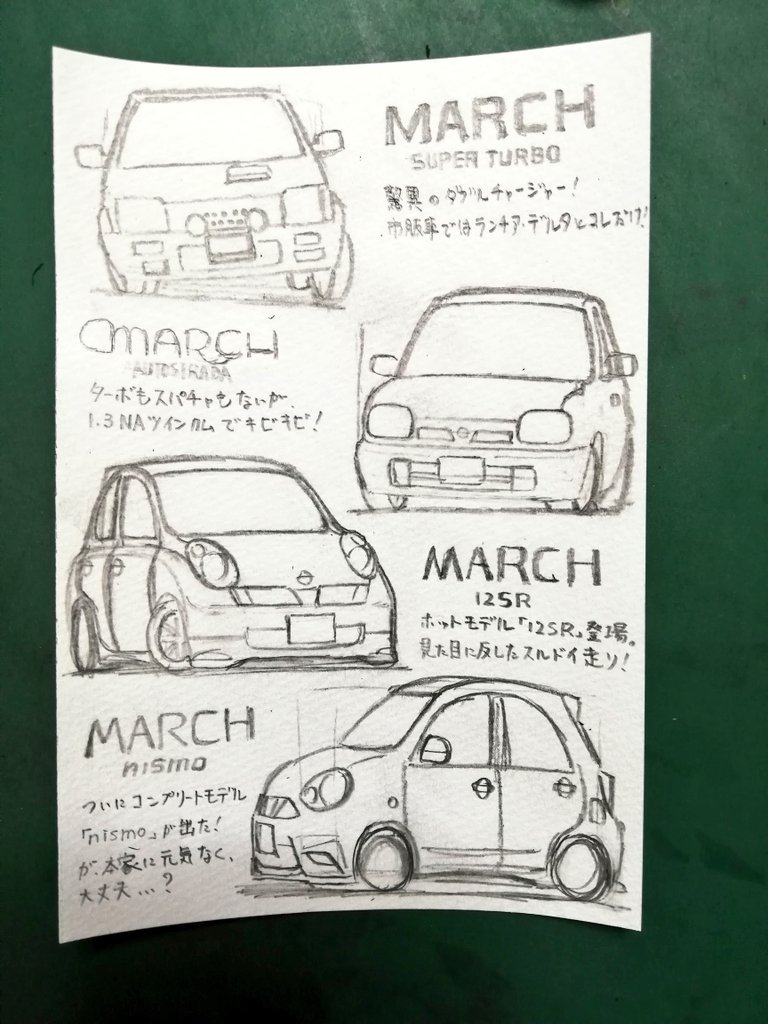 MARCH
SUPER TURBO
驚異のダブルチャージャー!
市販車ではランチア・デルタとコレだけ!
MARCH
AUTOSTRADA
ターボもスパチャもないが、
1.3NAツインカムでキビキビ!
MARCH
12SR
ホットモデル「12SR」登場。
見た目に反したスルドイ走り!
MARCH
nismo
ついにコンプリートモデル
「nismo」が出た!
が、本家に元気なく、
大丈夫…?